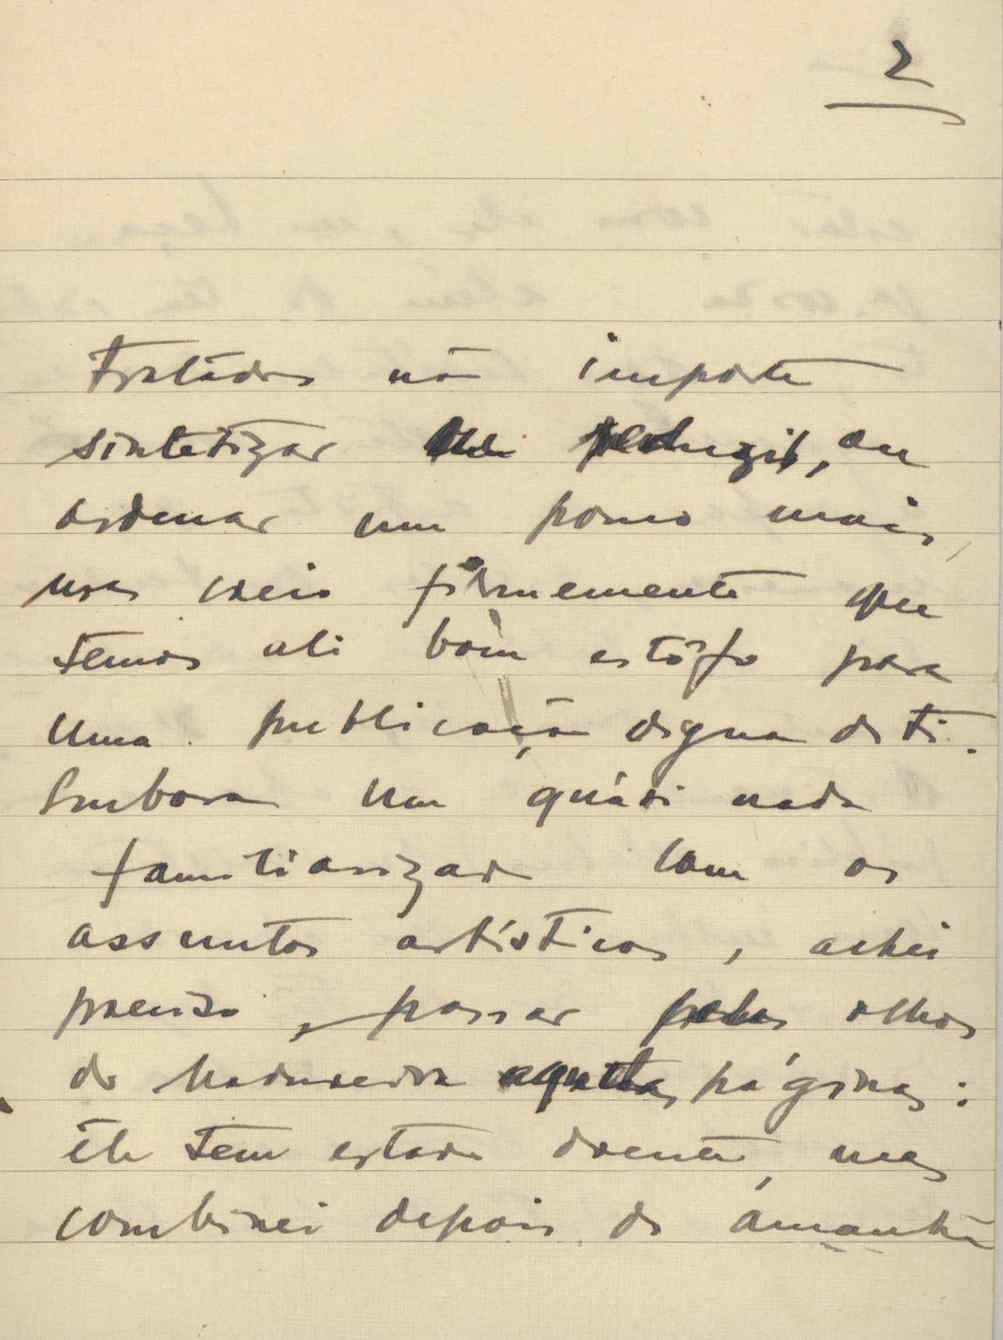 2
tratadas não importa
sintetizar ou reduzir, ou
ordenar um pouco mais,
mas creio firmemente que
temos ali bom estôfo para
uma publicação digna de ti.
Embora um quási nada
familiarizado com os
assuntos artísticos, achei
preciso passar pelos olhos
do Madureira aquelas páginas:
êle tem estado doente, mas
combinei depois de âmanhã